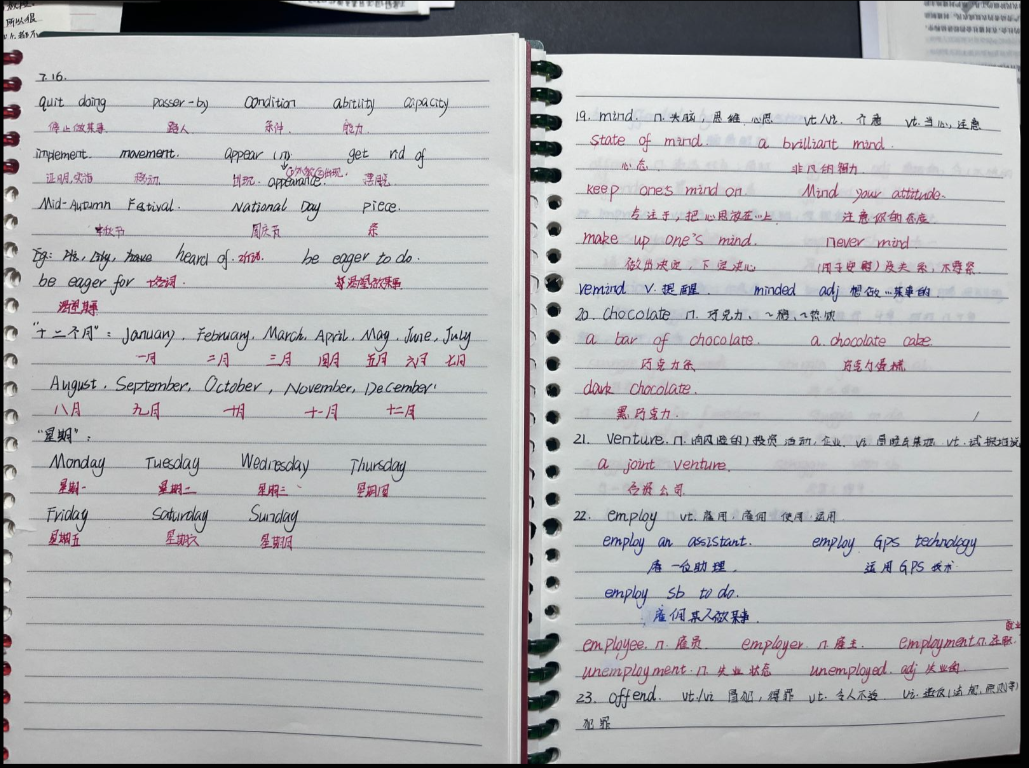 7.16.
quit doing passer-by condition ability capacity
停止做某事 路人 条件 能力
implement movement. appear get rid of
证明, 实施 移动 出现 appearance. 摆脱
Mid-Autumn Fstival. National Day piece.
中秋节 国庆节
Eg: heard of. 听说. be eager to do.
be eager for +名词. 渴望做某事
渴望某事
"十二个月": January, February, March, April, May, June, July
一月 二月 三月 四月 五月 六月 七月
August, September, October, November, December.
八月 九月 十月 十一月 十二月
"星期":
Monday Tuesday Wednesday Thursday
星期一 星期二 星期三 星期四
Friday Saturday Sunday
星期五 星期六 星期日
19. mind. n. 头脑, 思维, 心思 vt./vi. 介意 vt. 当心, 注意
state of mind. a brilliant mind.
心态. 非凡的智力
keep one's mind on. Mind your attitude.
专注于, 把心思放在…上 注意你的态度
make up one's mind. never mind
做出决定, 下定决心 (用于安慰) 没关系, 不要紧
remind v. 提醒. minded adj 想做…某事的
20. chocolate n. 巧克力, ~糖, ~热饮
a bar of chocolate. a chocolate cake.
巧克力条 巧克力蛋糕
dark chocolate.
黑巧克力
21. venture. n. (有风险的) 投资活动, 企业 vi. 冒险去某地 vt.
a joint venture.
合资公司
22. employ vt. 雇用, 雇佣 使用, 运用
employ an assistant. employ GPS technology
雇一位助理. 运用GPS技术
employ sb to do.
雇佣某人做某事.
employee. n. 雇员 employer. n. 雇主 employment. n. 就业
unemployment. n. 失业状态 unemployed. adj 失业的.
23. offend. vt./vi 冒犯, 得罪 vt. 令人不适 vi. 违反(法规, 原则等)
犯罪